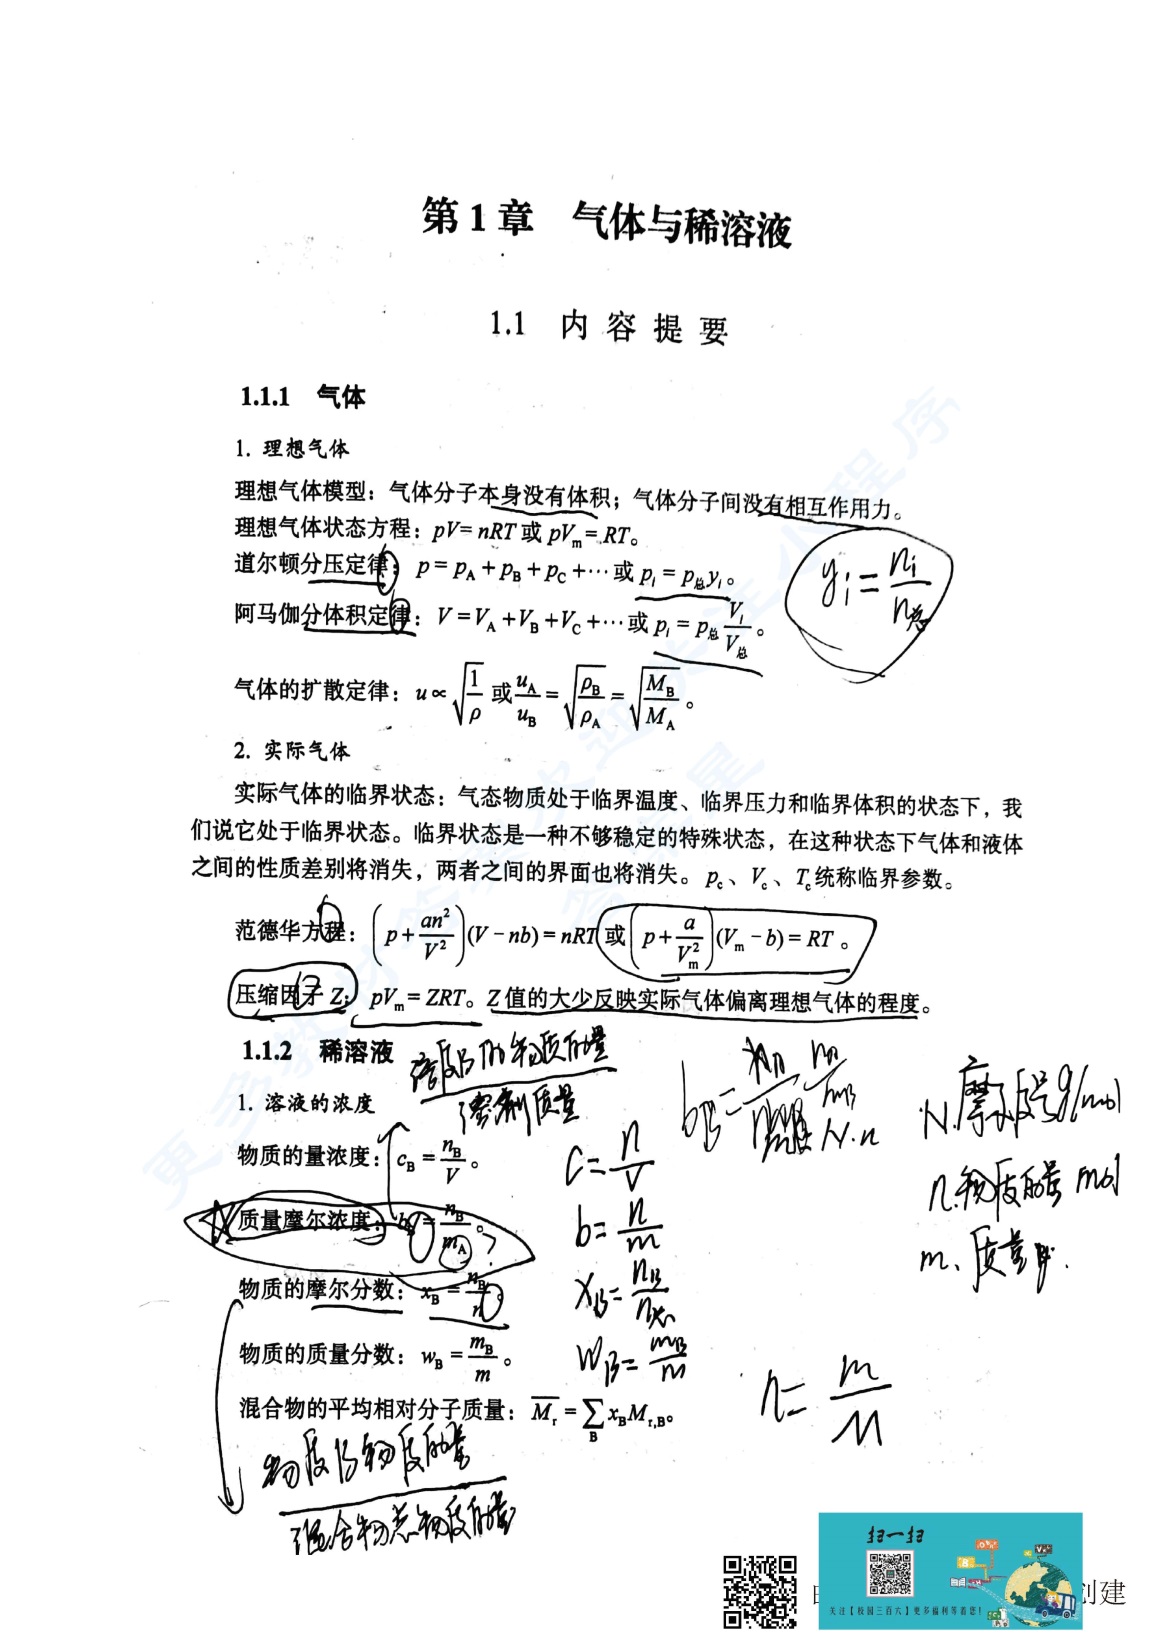 第1章 气体与稀溶液
1.1 内容提要
1.1.1 气体
1. 理想气体
理想气体模型：气体分子本身没有体积；气体分子间没有相互作用力。
理想气体状态方程：pV= nRT 或 pVm = RT。
道尔顿分压定律：p = pA + pB + pC + ⋯ 或 pi = p总yi。
yi = ni/n总
阿马伽分体积定律：V = VA + VB + VC + ⋯ 或 pi = p总 Vi/V总。
气体的扩散定律：u ∝ √(1/ρ) 或 uA/uB = √(ρB/ρA) = √(MB/MA)。
2. 实际气体
实际气体的临界状态：气态物质处于临界温度、临界压力和临界体积的状态下，我
们说它处于临界状态。临界状态是一种不够稳定的特殊状态，在这种状态下气体和液体
之间的性质差别将消失，两者之间的界面也将消失。pc、Vc、Tc统称临界参数。
范德华方程：(p + an²/V²)(V − nb) = nRT 或 (p + a/Vm²)(Vm − b) = RT。
压缩因子 Z：pVm = ZRT。Z 值的大少反映实际气体偏离理想气体的程度。
1.1.2 稀溶液
溶质B的物质的量
溶剂质量
1. 溶液的浓度
物质的量浓度：cB = nB/V。
c = n/V
n.物质的量 mol
质量摩尔浓度：bB = nB/mA。
b = n/m
m、质量
物质的摩尔分数：xB = nB/n。
xB = nB/n总
物质的质量分数：wB = mB/m。
wB = mB/m
n = m/M
混合物的平均相对分子质量：Mr = ∑B xBMr,B。
物质B物质的量
混合物总物质的量
扫一扫
关注【校园三百六】更多福利等着您!
创建
更多教材答案 欢迎关注 小程序
答案星